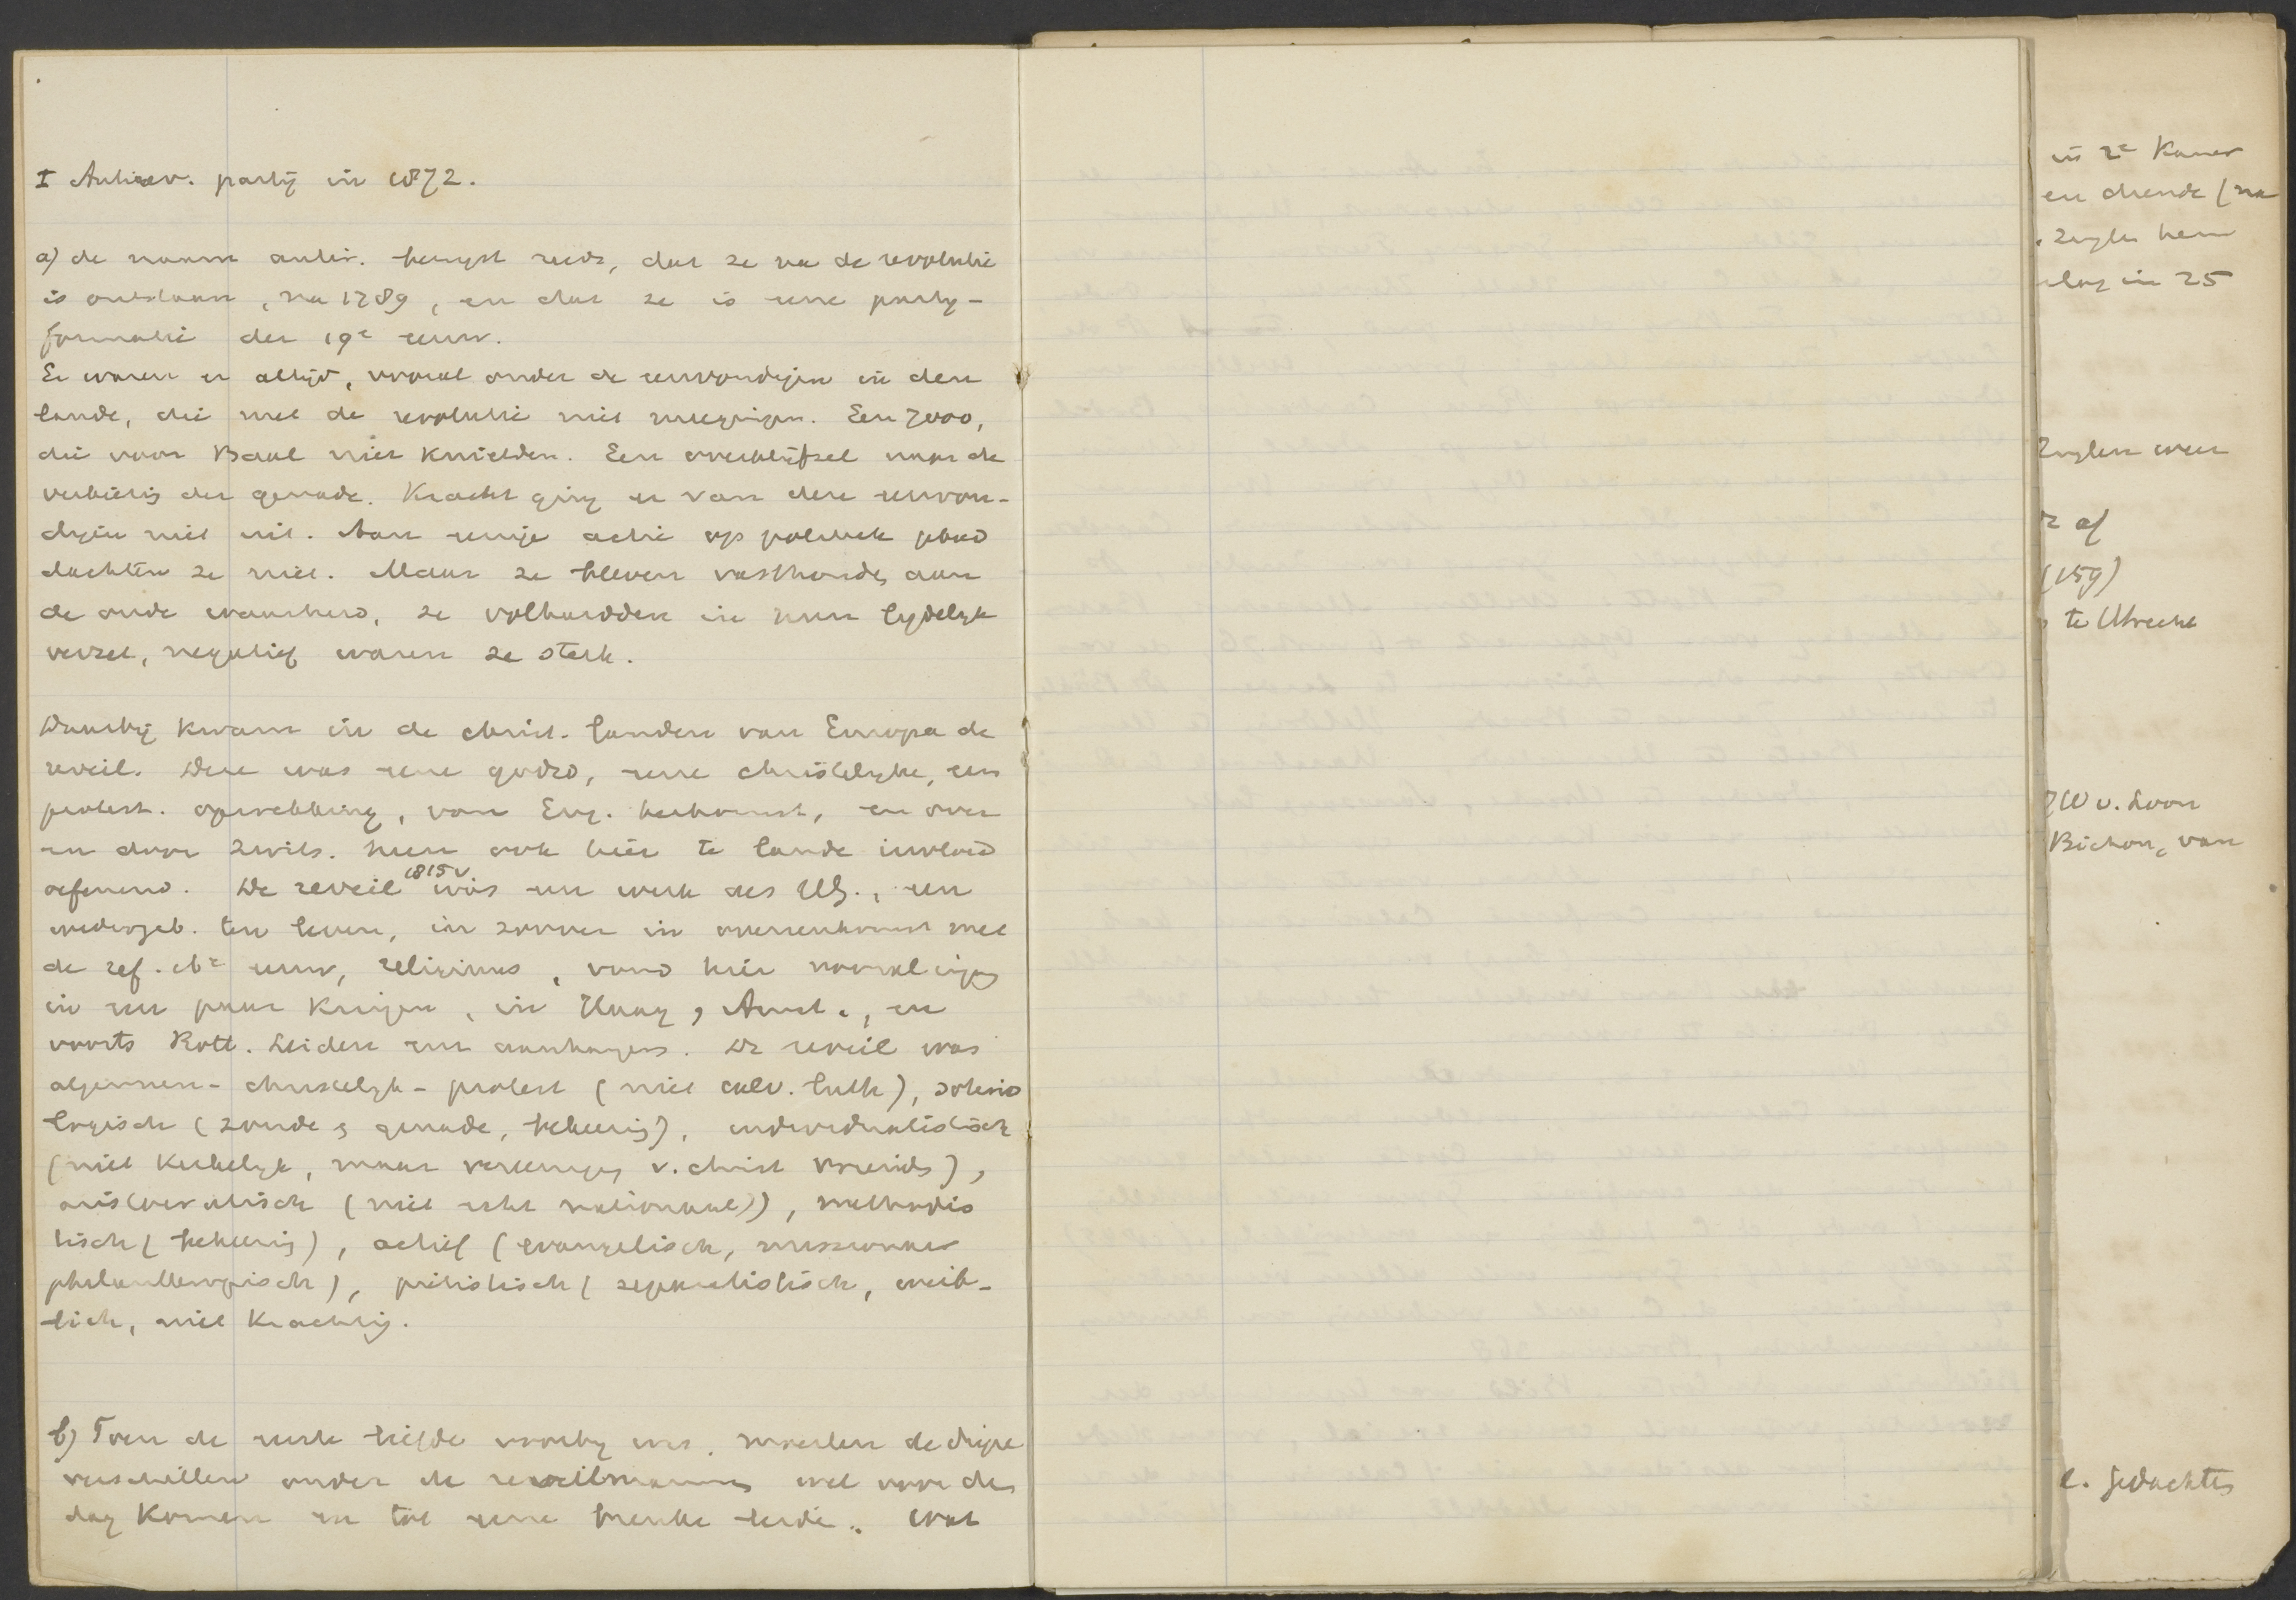 I Antirev. partij in 1872.
a) de naam antir. betuigt reeds, dat ze na de revolutie
is ontstaan, na 1789, en dat ze is eene party-
formatie der 19e eeuw.
Er waren er altijd, vooral onder de eenvoudigen in den
lande, die met de revolutie niet meegingen. Een 7000,
die voor Baal niet knielden. Een overblijfsel naar de
verkiezing der genade. Kracht ging er van deze eenvou-
digen niet uit. Aan eenige actie op politiek gebied
dachten ze niet. Maar ze bleven vasthouden aan
de oude waarheid, ze volhardden in hun lydelyk
verzet, negatief waren ze sterk.
Daarbij kwam in de christ. landen van Europa de
reveil. Deze was eene godsd, eene christelyke, een
protest. opwekking, van Eng. herkomst, en over
en door Zwits. heen ook hier te lande invloed
oefenend. De reveil 1815v was een werk des H.G., een
wedergeb. ten leven, in zoover in overeenkomst met
de ref. der 16e eeuw, religieus, vond hier vooral ingang
in een paar kringen, in Haag, Amst., en
voorts Rott. Leiden een aanhangers. De reveil was
algemeen-christelyk-protest (niet calv. luth), soterio
logisch (zonde & genade, bekeering), individualistisch
(niet kerkelyk, maar vereeniging v. christ vrienden),
aristocratisch (niet echt nationaal), methodis
tisch (bekeering), actief (evangelisch, missionair
philanthropisch), piëtistisch (separatistisch, weib-
lich, niet krachtig.
b) Toen de eerste liefde voorby was, moesten de diepe
verschillen onder de reveilmannen wel voor den
dag komen en tot eene breuke leiden. Wat
in 2e Kamer
en drende (na
Zuylen hem
in 25
Zuylen weer
af
(159)
te Utrecht
v. Loon
Bichon, van
l. gedachten